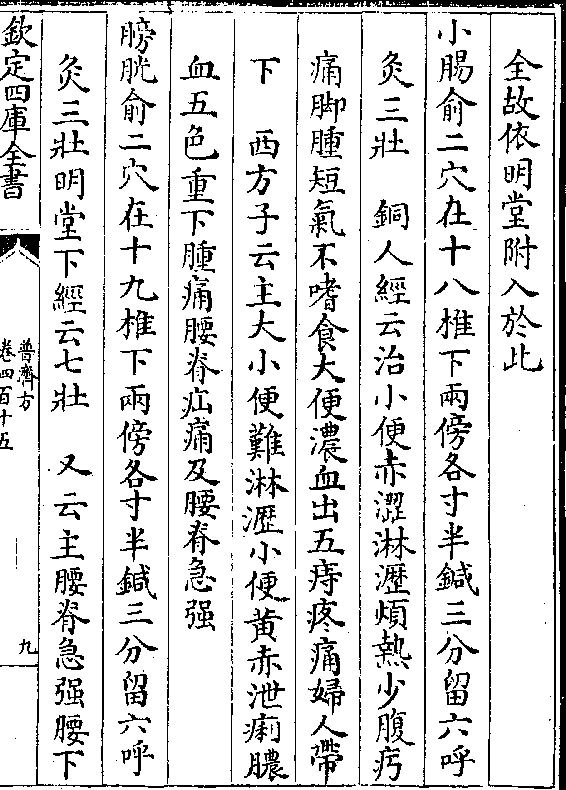 全故依明堂附入於此
小腸俞二穴在十八椎下兩傍各寸半鍼三分留六呼
灸三壯　銅人經云治小便赤澀淋瀝煩熱少腹疞
痛脚腫短氣不嗜食大便濃血出五痔疼痛婦人帶
下　西方子云主大小便難淋瀝小便黃赤泄痢膿
血五色重下腫痛腰脊疝痛及腰脊急强
膀胱俞二穴在十九椎下兩傍各寸半鍼三分留六呼
灸三壯明堂下經云七壯　又云主腰脊急强腰下
欽定四庫全書
普濟方
卷四百十五
九